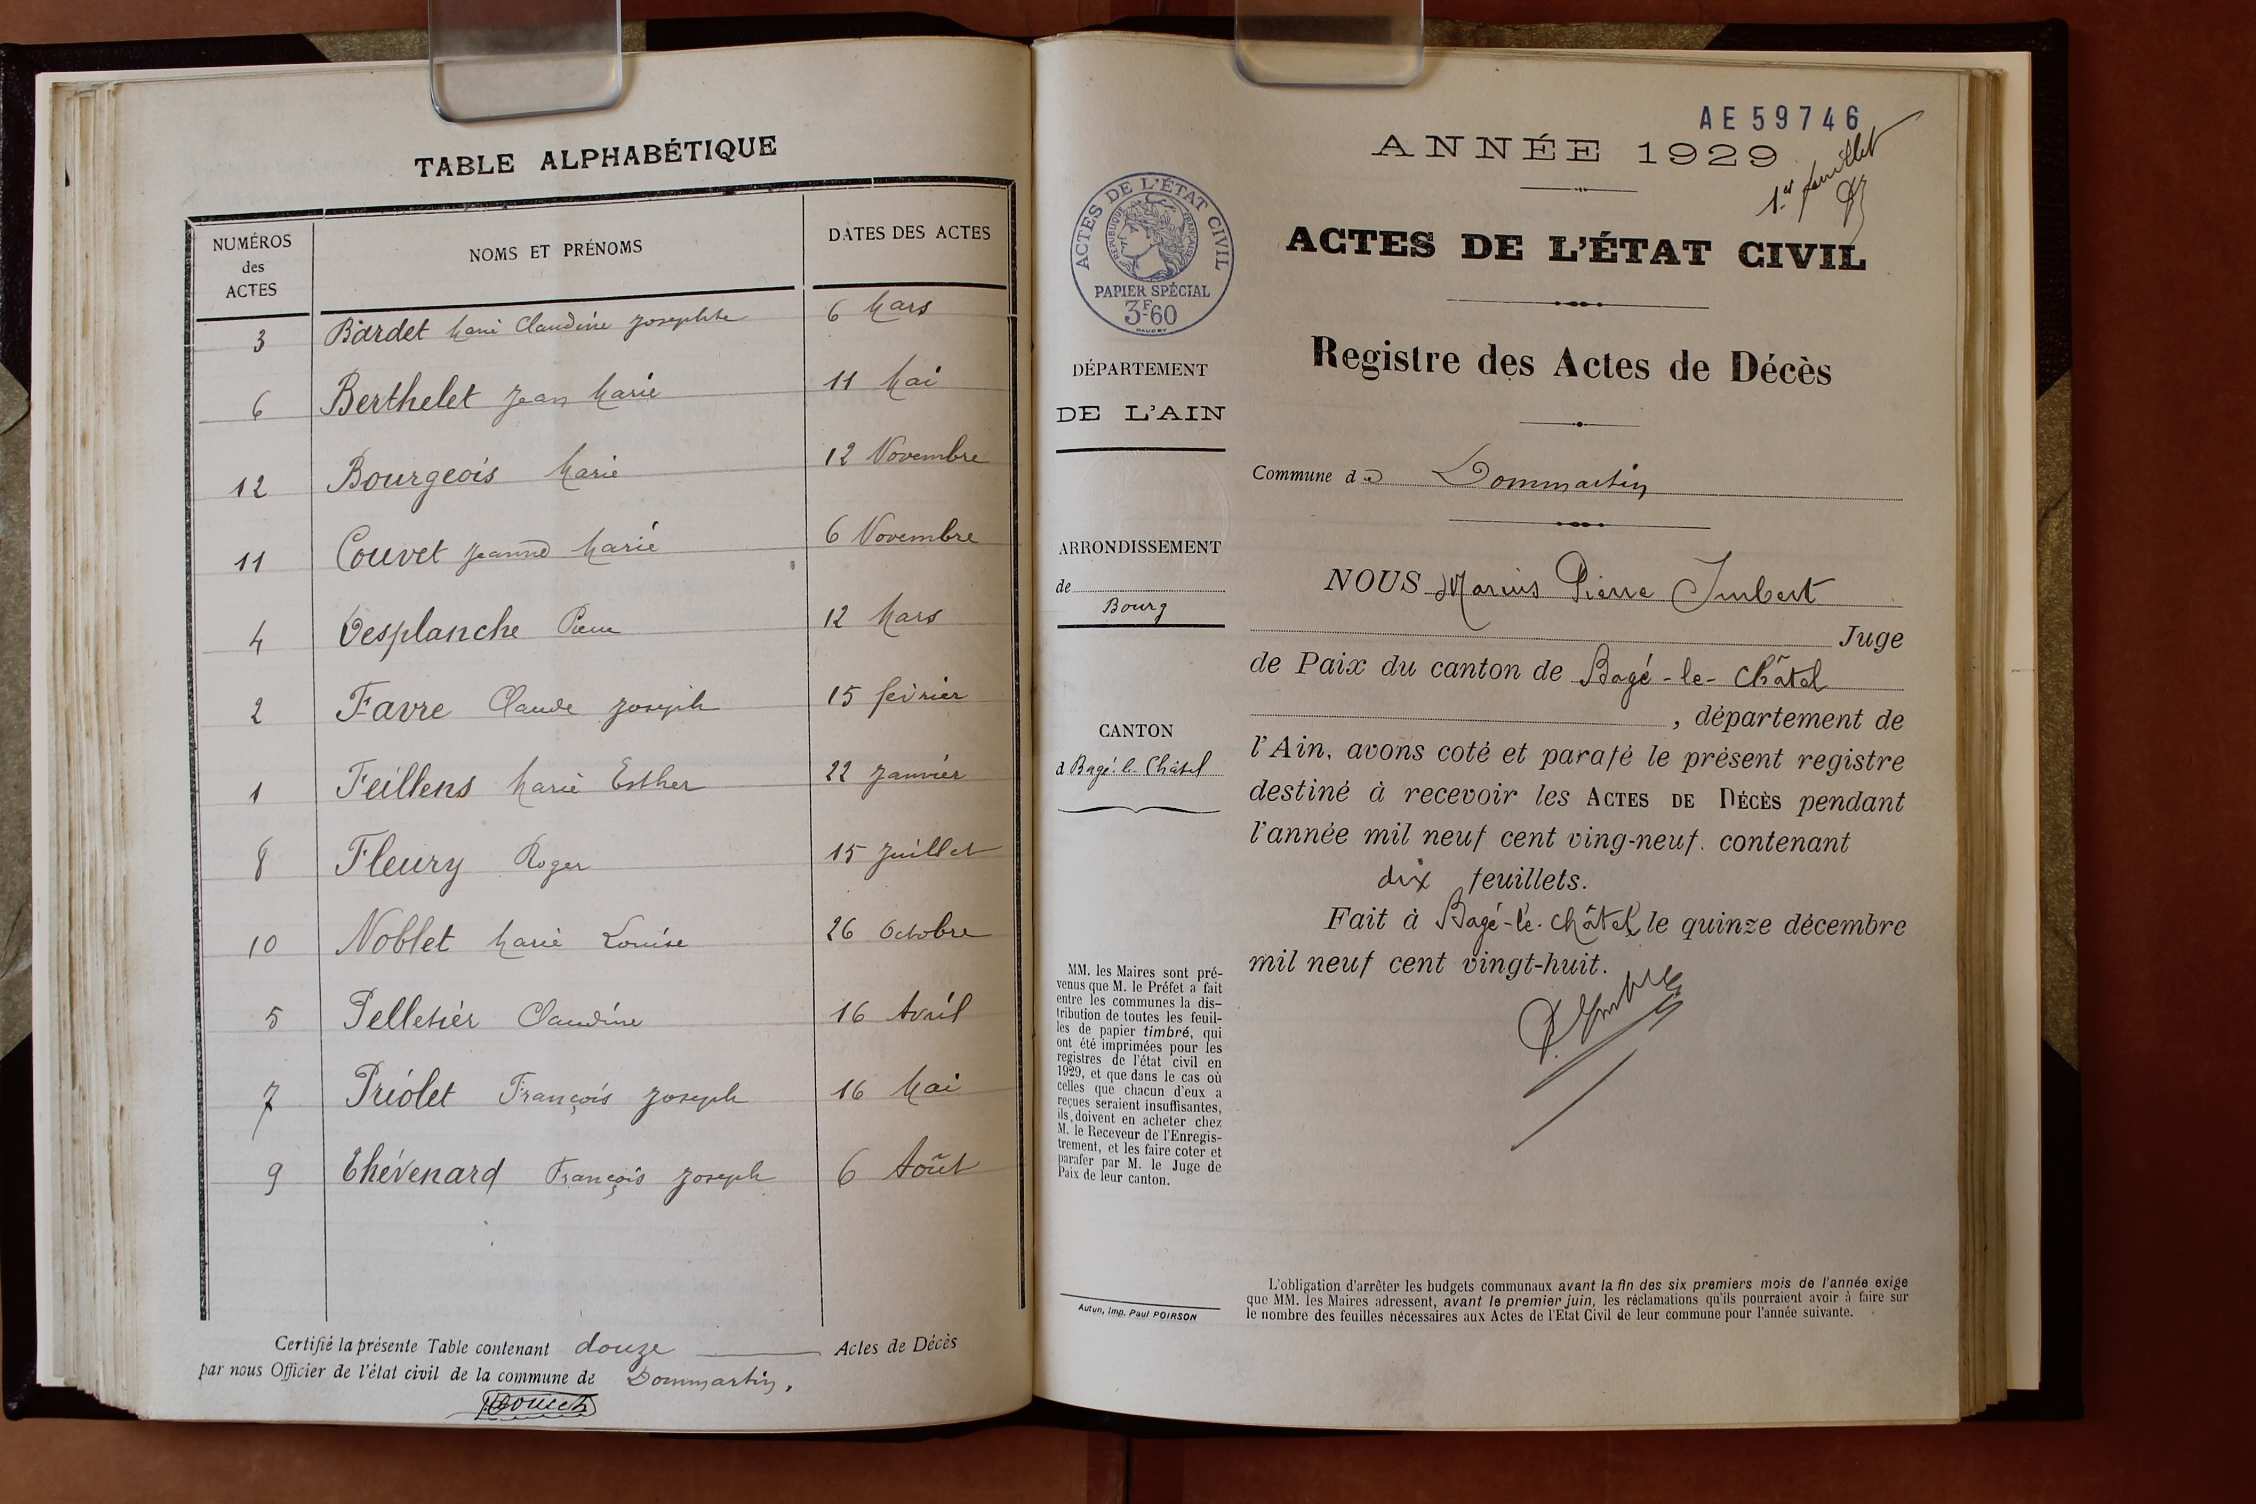 TABLE ALPHABÉTIQUE
NUMÉROS
des
ACTES
NOMS ET PRÉNOMS
DATES DES ACTES
3 Bardet Marie Claudine Josephte 6 Mars
6 Berthelet Jean Marie 11 Mai
12 Bourgeois Marie 12 Novembre
11 Couvet Jeanne Marie 6 Novembre
4 Desplanche Pierre 12 Mars
2 Favre Claude Joseph 15 février
1 Feillens Marie Esther 22 Janvier
8 Fleury Roger 15 Juillet
10 Noblet Marie Louise 26 Octobre
5 Pelletier Claudine 16 Avril
7 Priolet François Joseph 16 Mai
9 Thévenard François Joseph 6 Août
Certifié la présente Table contenant douze Actes de Décès
par nous Officier de l'état civil de la commune de Dommartin.
AE 59746
ANNÉE 1929
1er feuillet
ACTES DE L'ÉTAT CIVIL
ACTES DE L'ÉTAT CIVIL
RÉPUBLIQUE FRANÇAISE
PAPIER SPÉCIAL
3F60
DÉPARTEMENT
DE L'AIN
ARRONDISSEMENT
de
Bourg
CANTON
d Bagé-le-Châtel
MM. les Maires sont pré-
venus que M. le Préfet a fait
entre les communes la dis-
tribution de toutes les feuil-
les de papier timbré, qui
ont été imprimées pour les
registres de l'état civil en
1929, et que dans le cas où
celles que chacun d'eux a
reçues seraient insuffisantes,
ils doivent en acheter chez
M. le Receveur de l'Enregis-
trement, et les faire coter et
parafer par M. le Juge de
Paix de leur canton.
Autun, Imp. Paul POIRSON
Registre des Actes de Décès
Commune de Dommartin
NOUS Marius Pierre Imbert
Juge
de Paix du canton de Bagé-le-Châtel
, département de
l'Ain, avons coté et parafé le présent registre
destiné à recevoir les ACTES DE DÉCÈS pendant
l'année mil neuf cent ving-neuf. contenant
dix feuillets.
Fait à Bagé-le-Châtel, le quinze décembre
mil neuf cent vingt-huit.
P. Imbert
L'obligation d'arrêter les budgets communaux avant la fin des six premiers mois de l'année exige
que MM. les Maires adressent, avant le premier juin, les réclamations qu'ils pourraient avoir à faire sur
le nombre des feuilles nécessaires aux Actes de l'Etat Civil de leur commune pour l'année suivante.